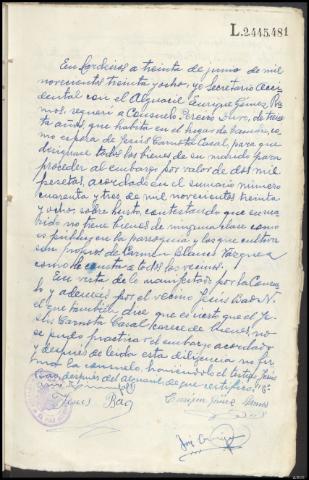 L.2445.481
En Lordeiros a treinta de junio de mil
novecientos treinta y ocho, yo Secretario acci
dental con el Alguacil Enrique Gómez Ra
mos, requerí a Consuelo, de trein
ta años, que habita en el lugar de co
mo esposa de Jesús Carnota Casal, para que
designase todos los bienes de su marido para
proceder al embargo por valor de dos mil
pesetas, acordado en el sumario número
cuarenta y tres de mil novecientos treinta
y ocho sobre hurto, contestando que su ma
rido no tiene bienes de ninguna clase como
es público en la parroquia y los que cultiva
son propios de Carmen Blanco Vázquez
como le consta a todos los vecinos.
En vista de lo manifestado por la Consue
lo y además por el vecino Jesús Bao N.
el que también dice que es cierto que el Je
sús Carnota Casal carece de bienes, no
se pudo practicar el embargo acordado
y después de leída esta diligencia no fir
mo la Consuelo, haciéndolo el testigo Jesús
Bao, después del alguacil de que certifico.
Jesús Bao
Enrique Gómez Ramos